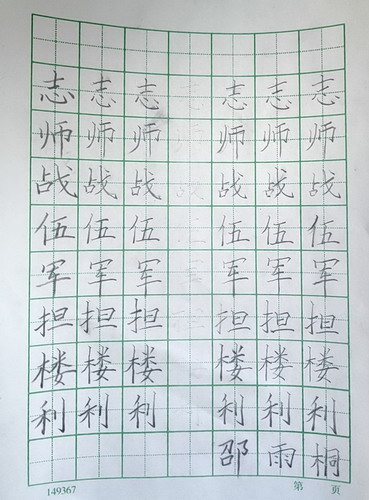 志志志志志志
师师师师师师
战战战战战战
伍伍伍伍伍伍
军军军军军军
担担担担担担
楼楼楼楼楼楼
利利利利利利
邵雨桐
149367 第 页